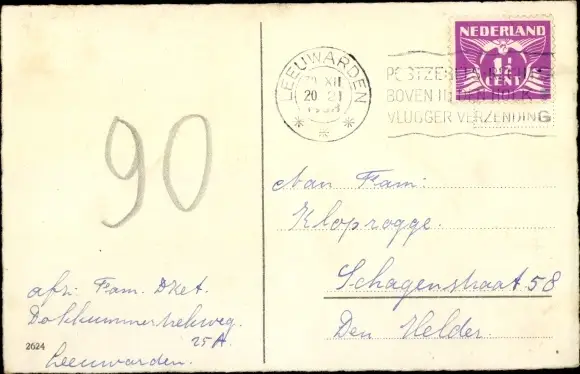 NEDERLAND
1½
CENT
LEEUWARDEN
XII
20 21
POSTZEGELS
BOVEN IN DEN HOEK
VLUGGER VERZENDING
90
Aan Fam:
Kloprogge.
Schagenstraat 58
Den Helder.
afz: Fam. Dket.
Dokkummertrekweg.
25A.
2624
Leeuwarden.